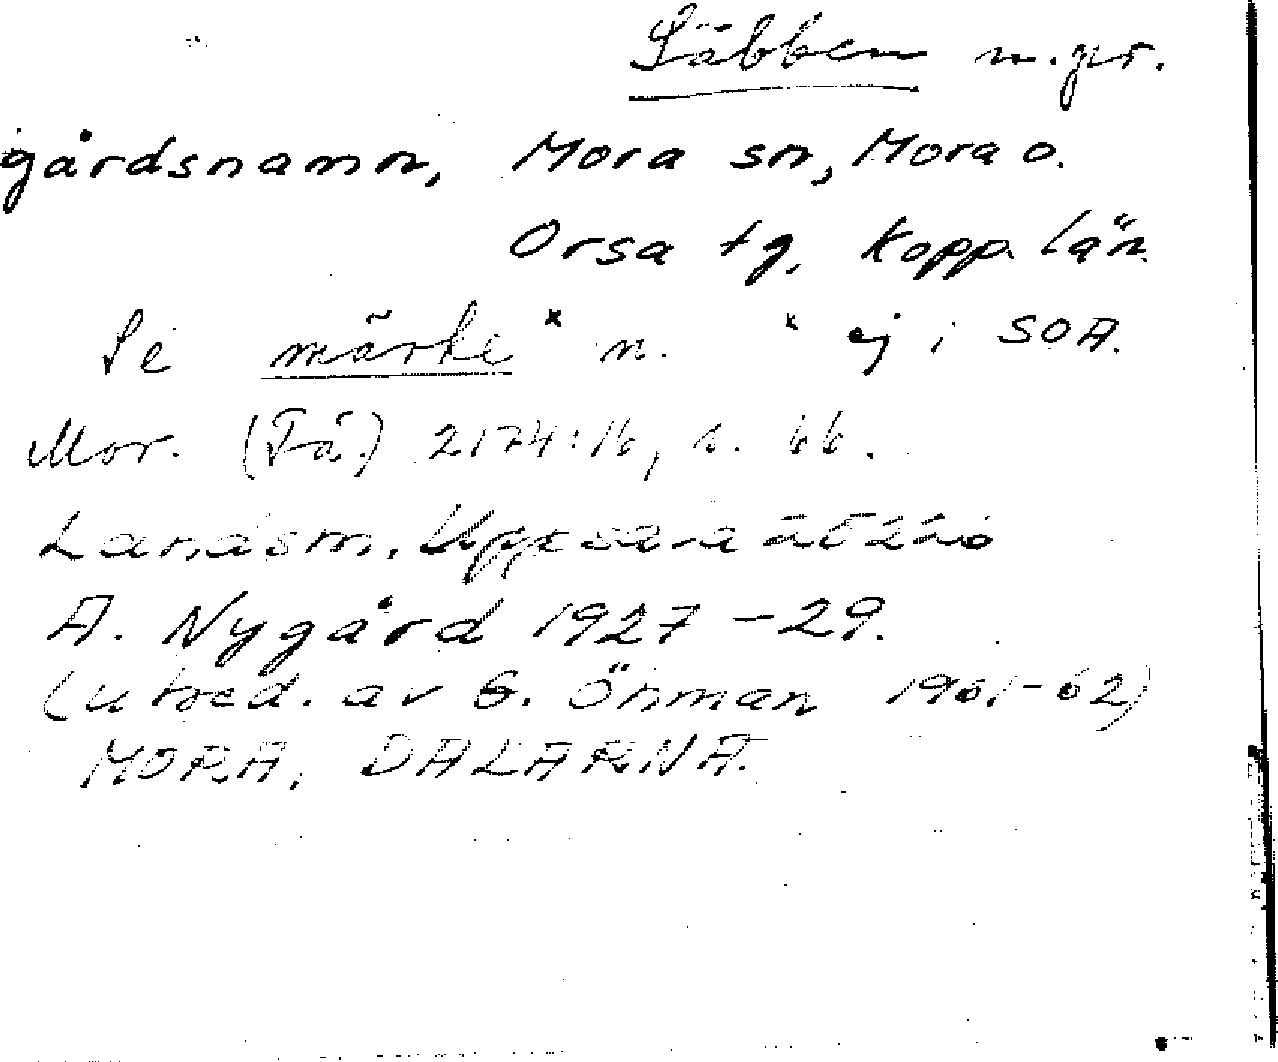 Säbben m.gr.
gårdsnamn, Mora sn, Mora o.
Orsa tg, Kopp. län.
Se märke x n. x ej i SOA.
Mor. (Få.) 2174:16, s. 66.
Landsm. Uppsala
A. Nygård 1927-29.
(utred. av G. Öhman 1961-62)
MORA, DALARNA.